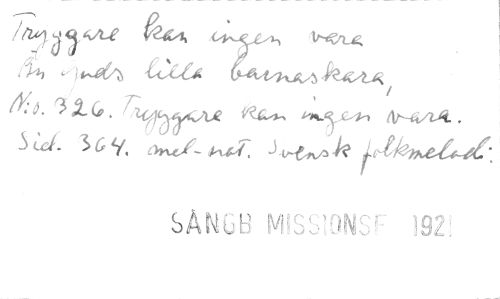 Tryggare kan ingen vara
Än Guds lilla barnaskara,
N:o. 326. Tryggare kan ingen vara.
Sid. 364. mel-not. Svensk folkmelodi.
SÅNGB MISSIONSF 1921